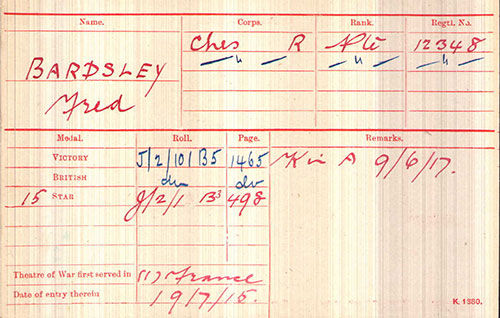 Name. Corps. Rank. Regtl. No.
BARDSLEY Ches R Pte 12348
Fred — " — — " — — " —
Medal. Roll. Page. Remarks.
VICTORY J/2/101B5 1465 K in A 9/6/17.
BRITISH do do
15 STAR J/2/1 B3 498
Theatre of War first served in (1) France
Date of entry therein 19/7/15.
K. 1380.